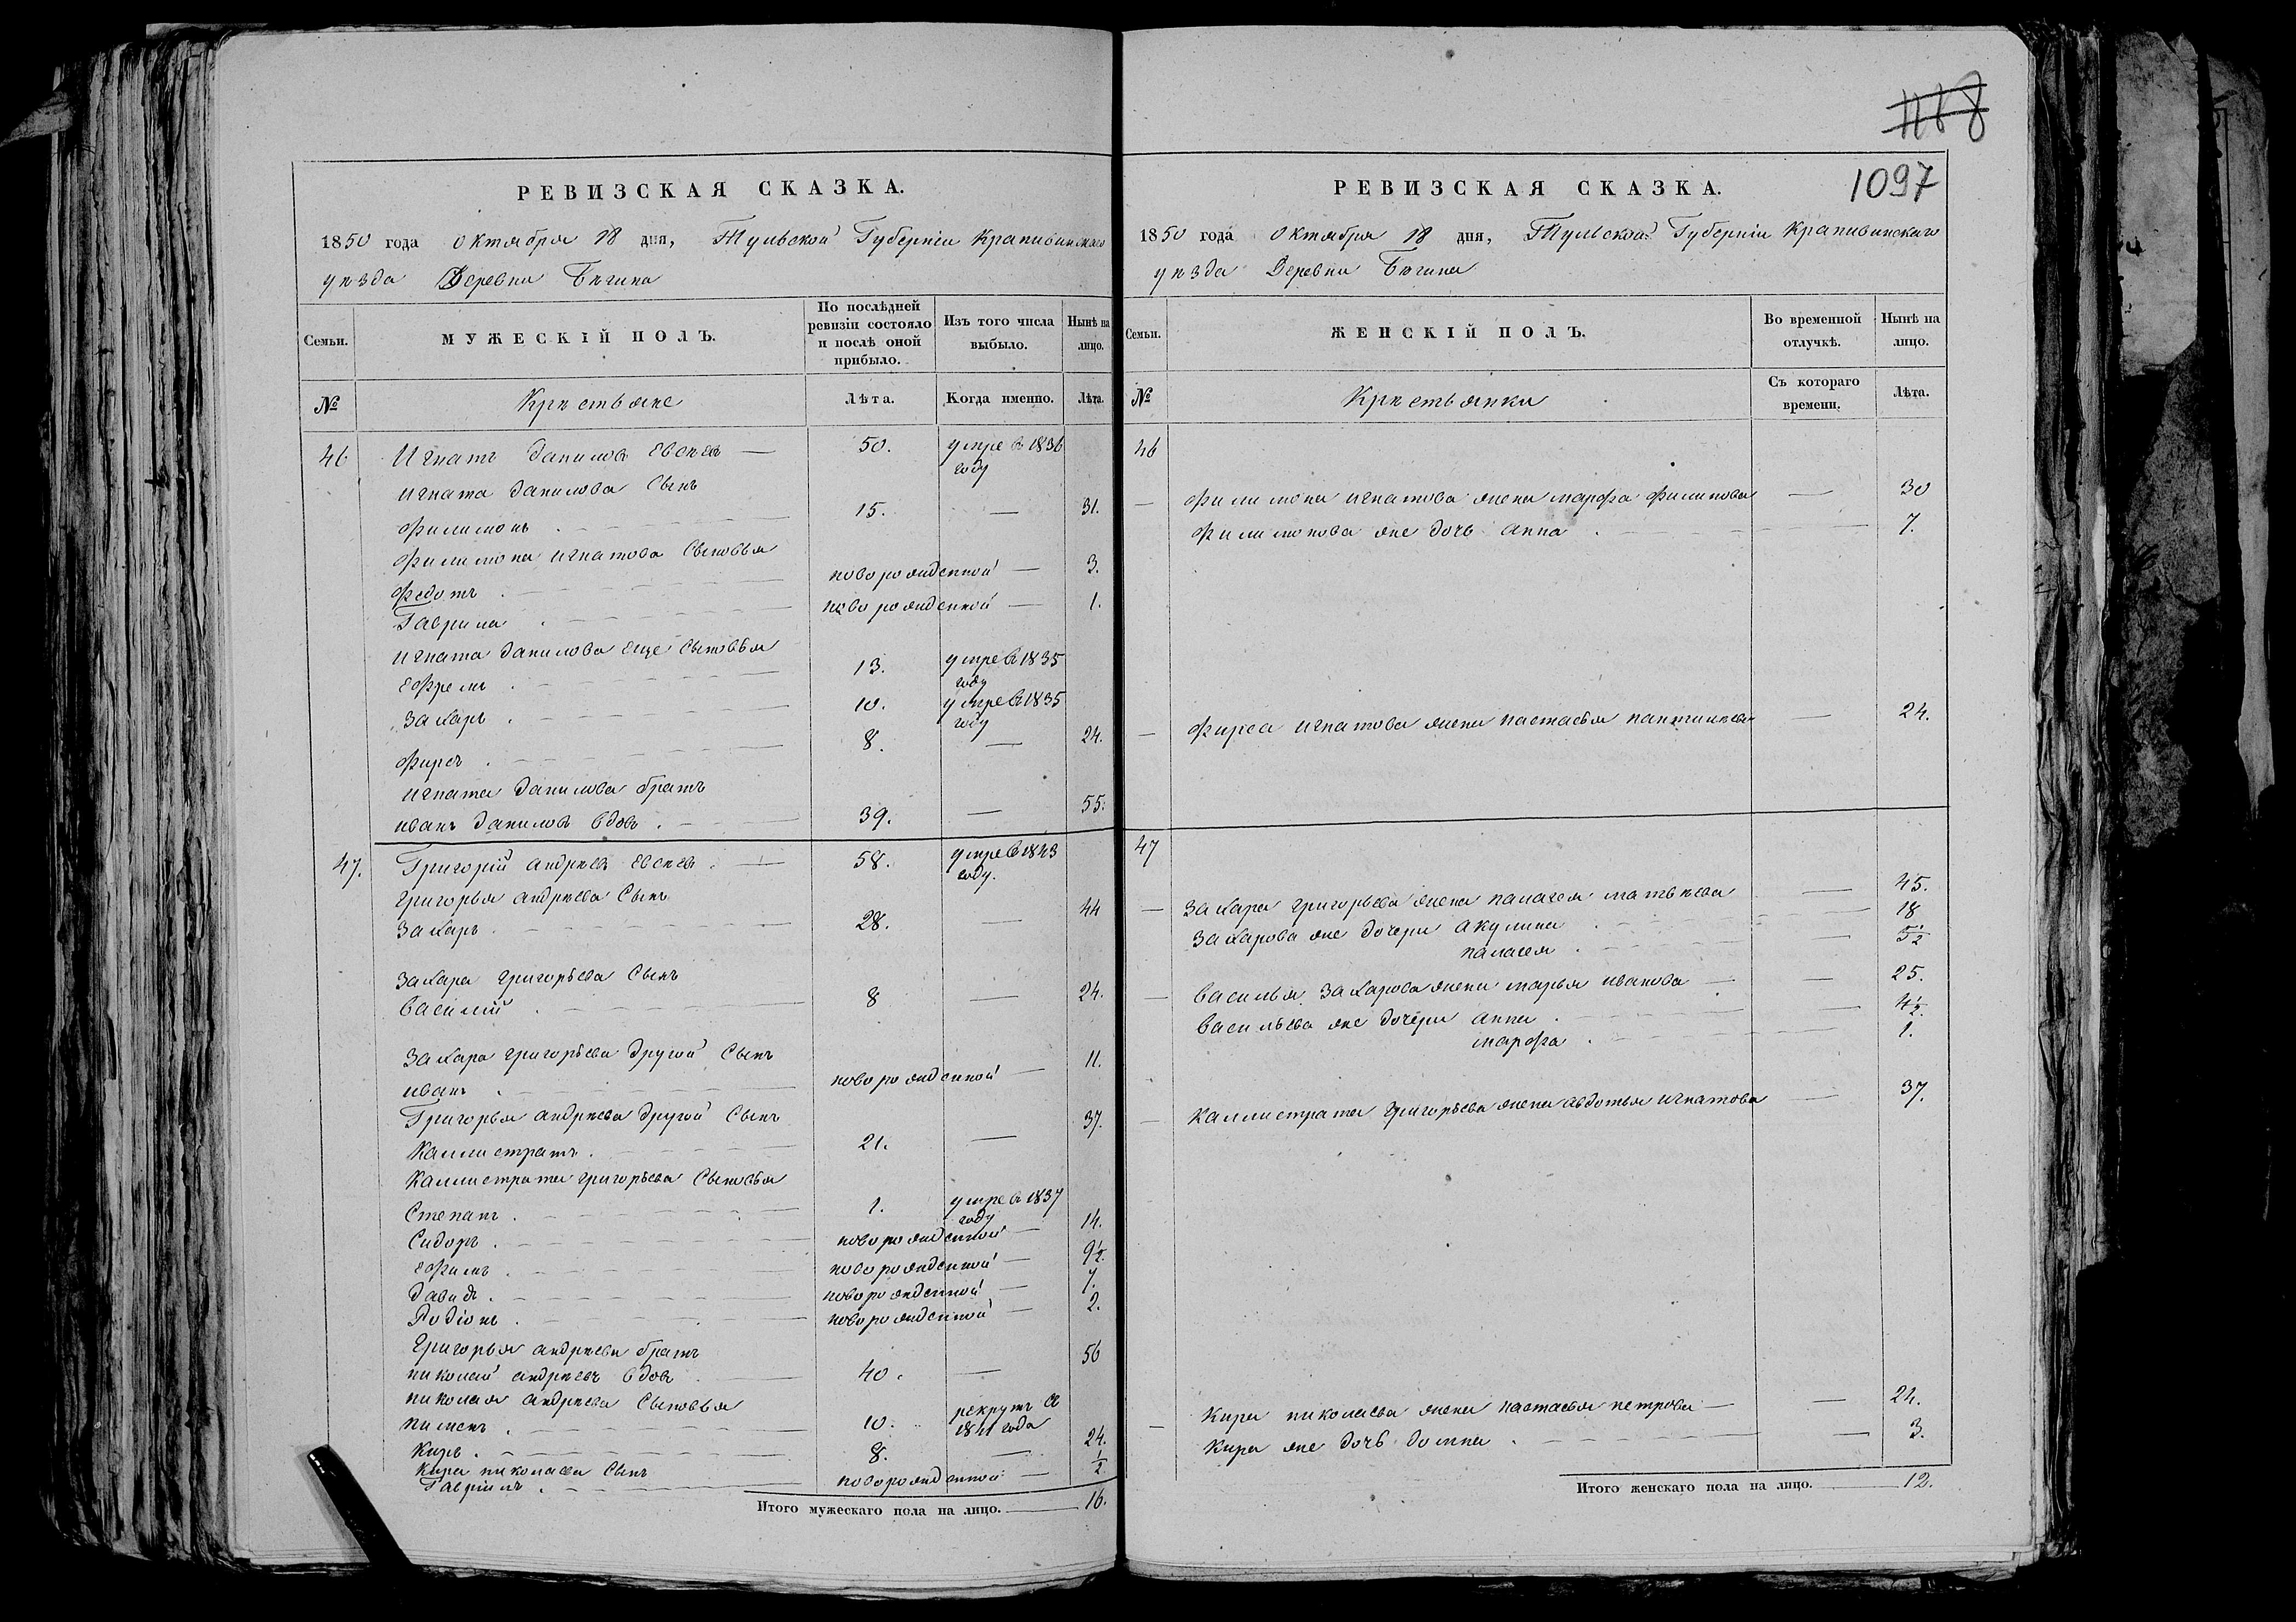 1168
1097
РЕВИЗСКАЯ СКАЗКА.
1850 года октября 18 дня, Тульской Губерніи Крапивинскаго
уѣзда Деревни Бѣгина
Семьи. МУЖЕСКІЙ ПОЛЪ. По послѣдней ревизіи состояло и послѣ оной прибыло. Изъ того числа выбыло. Нынѣ на лицо.
№ Крѣстьяне Лѣта. Когда именно. Лѣта.
46 Игнатъ данилов — 50. умре в 1836 году
игната данилова Сынъ
филимонъ 15. — 31.
филимона игнатова Сыновья
федотъ новорожденной — 3.
Гаврила новорожденной — 1.
игната данилова еще Сыновья
ефремъ 13. умре в 1835 году
Захаръ 10. умре в 1835 году
фирсъ 8. — 24.
игната данилова братъ
иванъ данилов вдов 39. — 55.
47. Григорій андрѣев — 58. умре в 1843 году.
григорья андрѣева Сынъ
Захаръ 28. — 44
Захара григорьева Сынъ
василий 8 — 24.
Захара григорьева другой Сынъ
иванъ новорожденной — 11.
Григорья андрѣева другой Сынъ
Каллистратъ 21. — 37.
Каллистрата григорьева Сыновья
Степанъ 1. умре в 1837 году
Сидоръ новорожденной — 14.
ефимъ новорожденной — 9½.
давидъ новорожденной — 7.
Родіонъ новорожденной — 2.
Григорья андрѣева братъ
николай андрѣевъ вдов 40. — 56
николая андрѣева Сыновья
пименъ 10. рекрутъ с 1841 года
Киръ 8. — 24.
Кира николаева Сынъ
Гаврiилъ новорожденной — ½
Итого мужескаго пола на лицо. 16.
РЕВИЗСКАЯ СКАЗКА.
1850 года октября 18 дня, Тульской Губерніи Крапивинскаго
уѣзда Деревни Бѣгина
Семьи. ЖЕНСКІЙ ПОЛЪ. Во временной отлучкѣ. Нынѣ на лицо.
№ Крѣстьянки Съ котораго времени. Лѣта.
46
— филимона игнатова жена марфа филипова — 30
филимонова же дочь анна — 7.
— фирса игнатова жена настасья — 24.
47
— Захара григорьева жена палагея матвѣева — 45.
Захарова же дочери акулина — 18
палагея — 5½
— василья Захарова жена марья иванова — 25.
васильева же дочери анна — 4½.
марфа — 1.
— Каллистрата григорьева жена авдотья игнатова — 37.
— Кира николаева жена настасья петрова — 24.
Кира же дочь домна — 3.
Итого женскаго пола на лицо. 12.